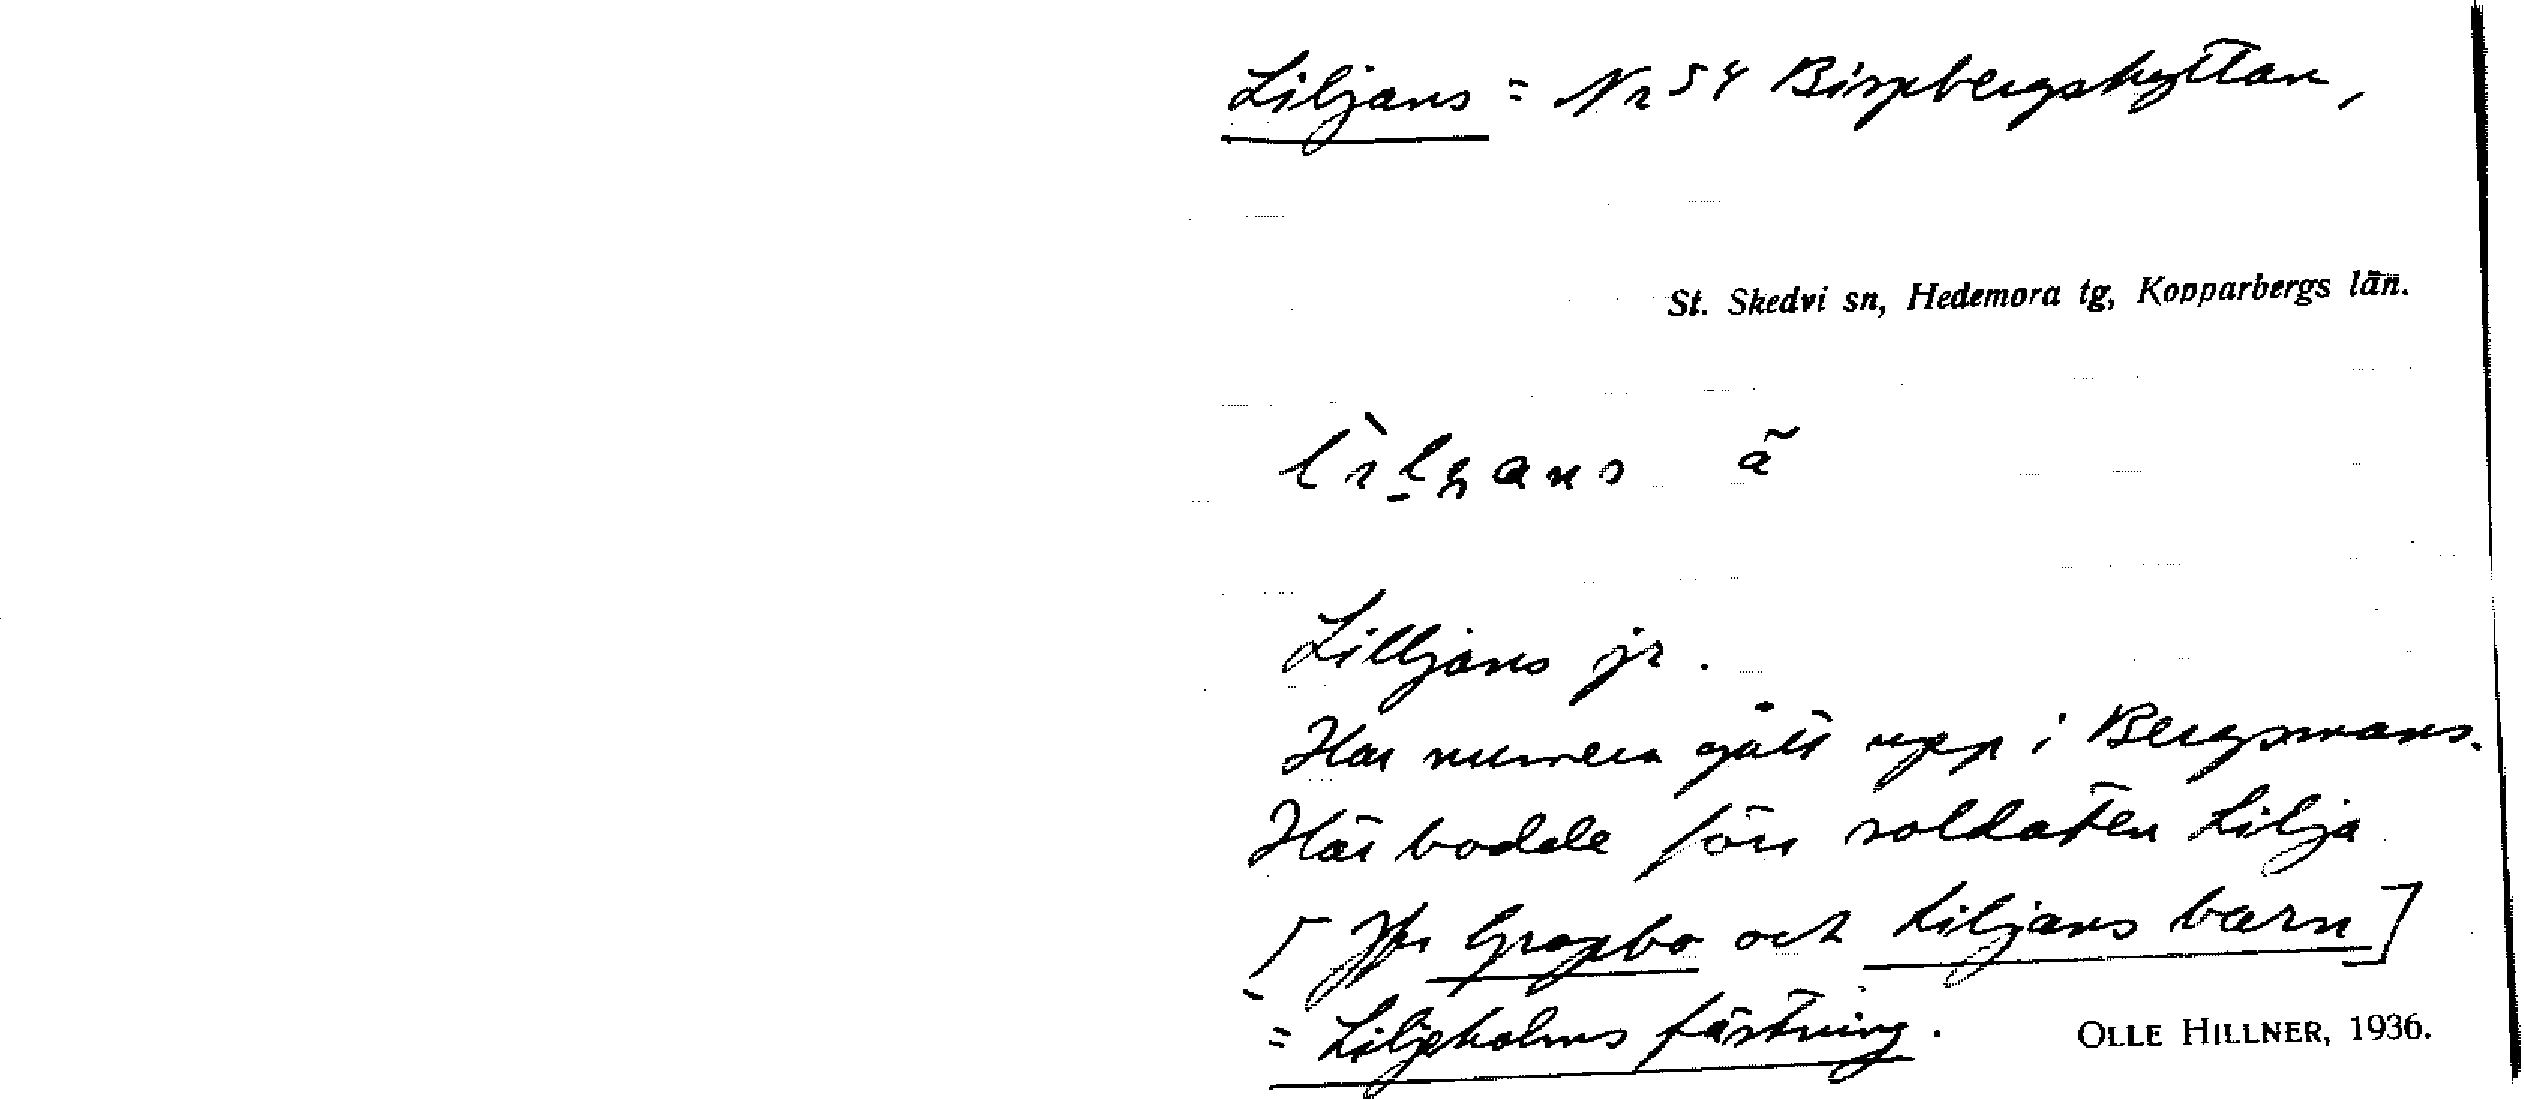 Liljans = Nr 54 Bispbergshyttan,
St. Skedvi sn, Hedemora tg, Kopparbergs län.
Lilljans jr.
Har numera gått upp i Bergsmans.
Här bodde förr soldaten Lilja
[Jfr Gropbo och Liljans barn]
= Liljeholms fästning.
OLLE HILLNER, 1936.